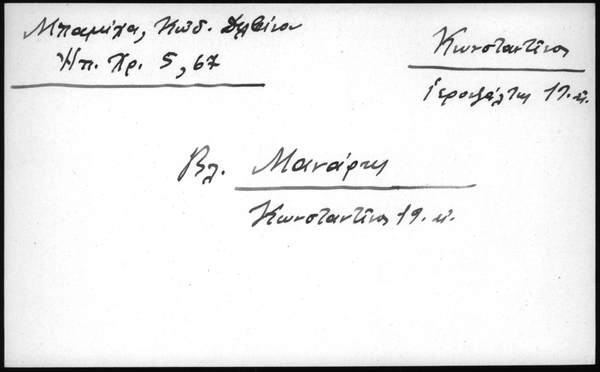 Μπαμίχα, Κώδ. Δελβίνου
Ηπ. Χρ. 5, 67
Κωνσταντίνος
Ιεροψάλτης 19. αι.
Βλ. Μανάρης
Κωνσταντίνος 19. αι.